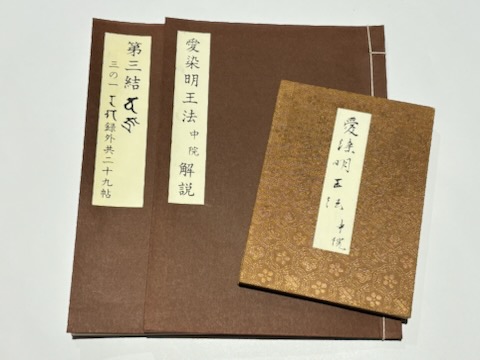 第三結
三の一 録外共二十九帖
愛染明王法 中院 解説
愛染明王法 中院